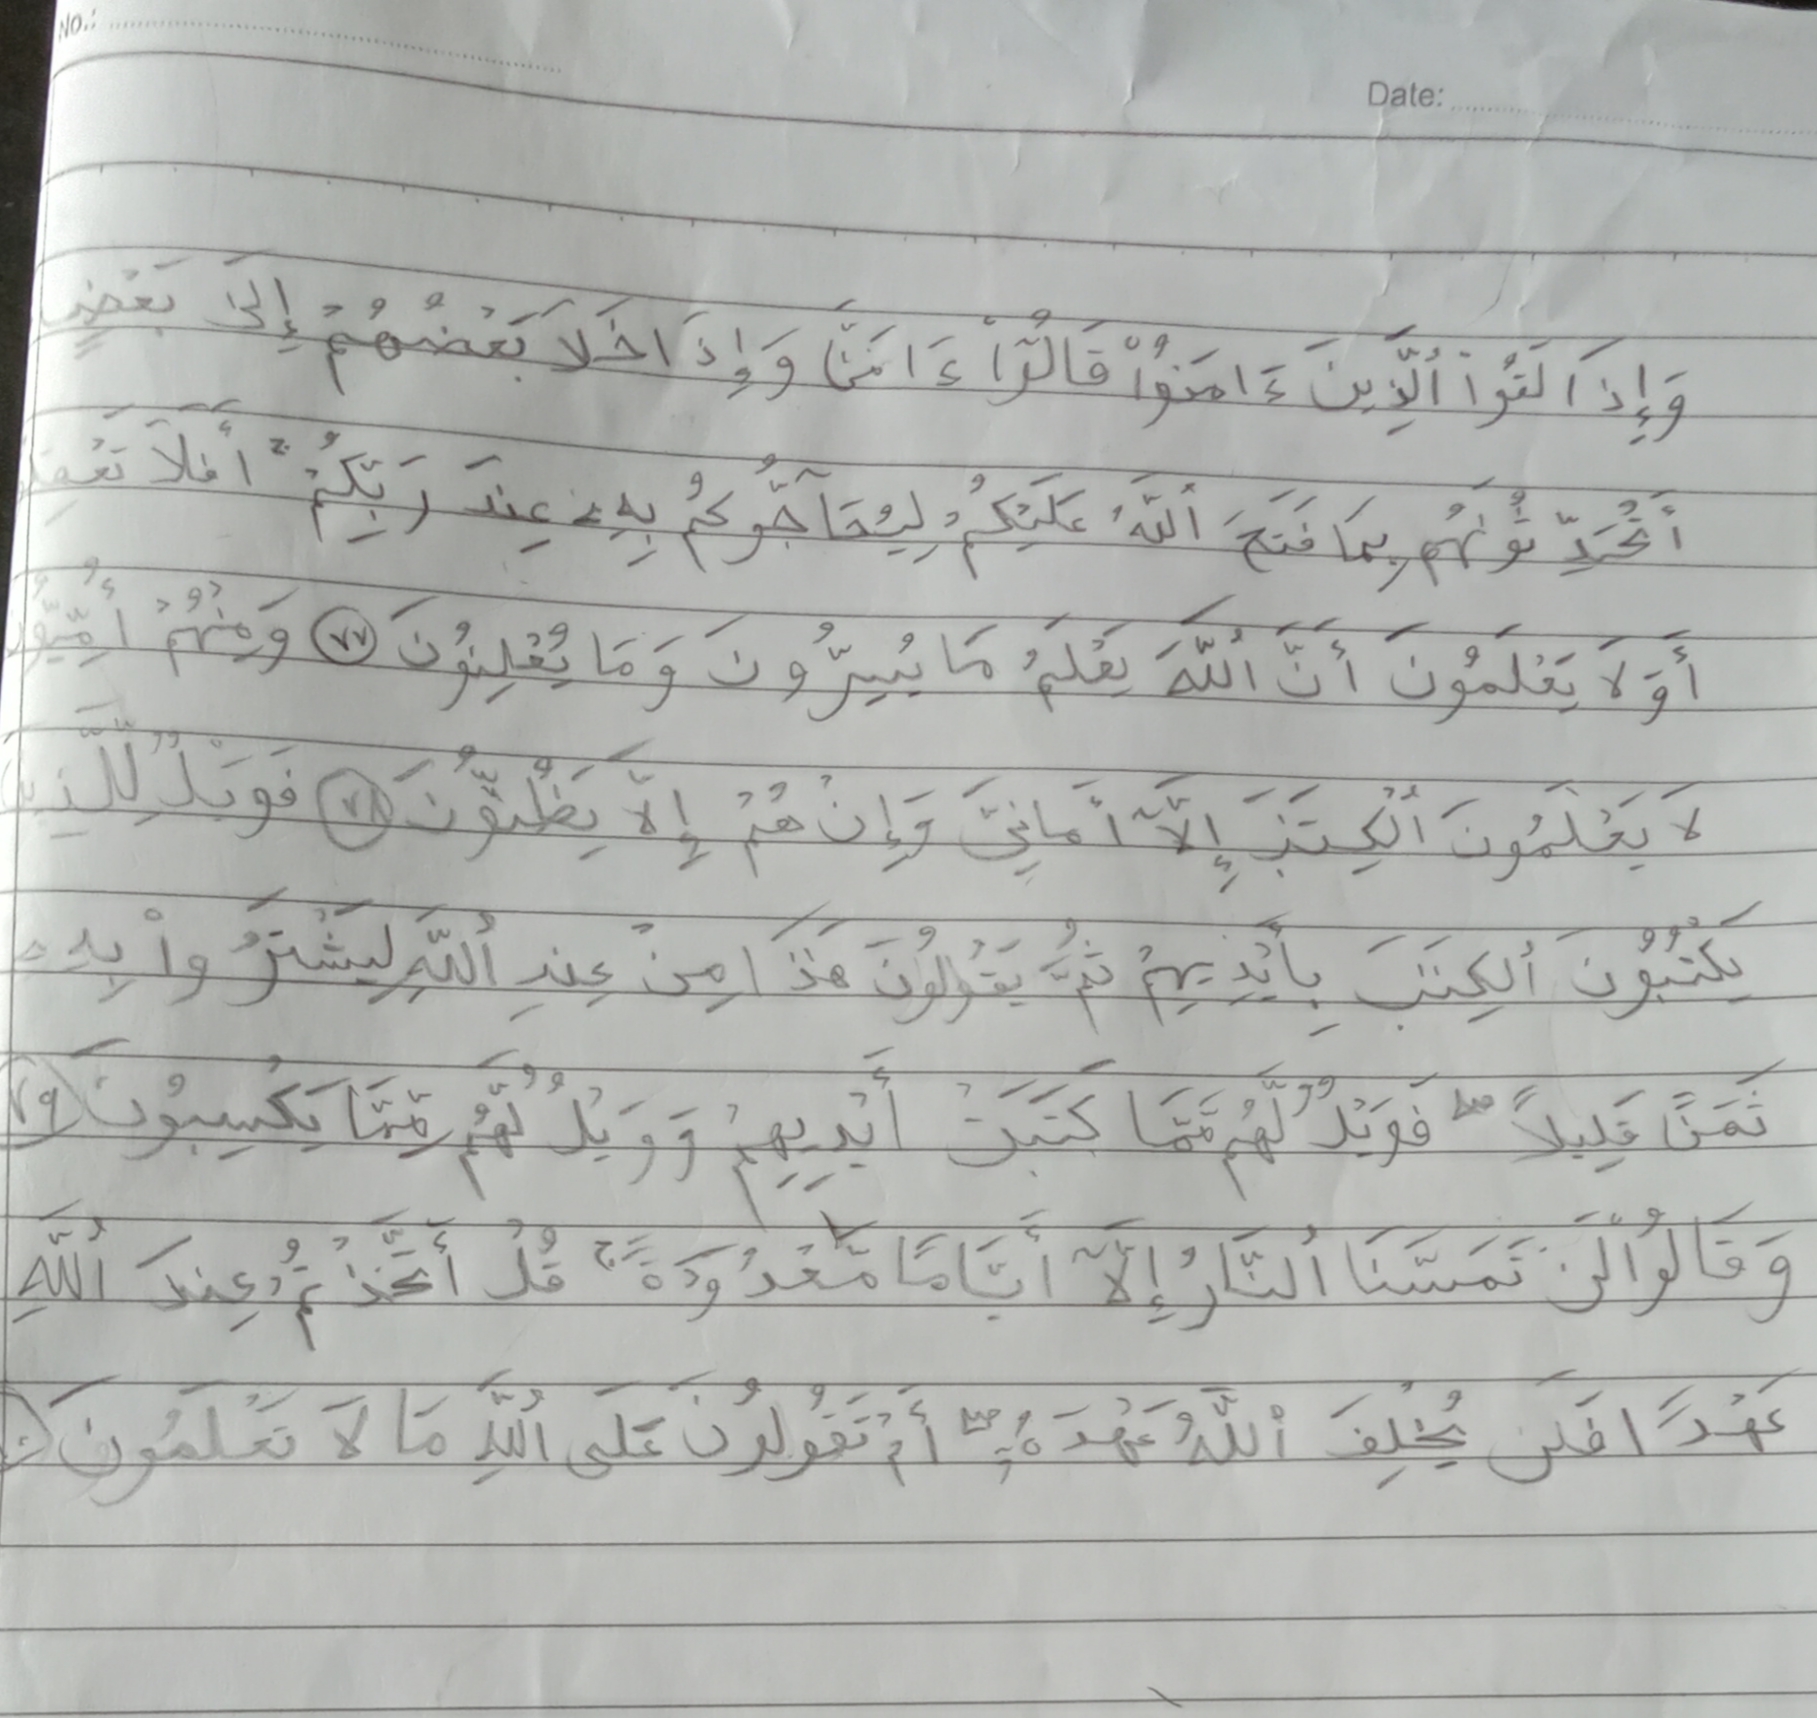 No.:
Date:
وَإِذَا لَقُوا۟ ٱلَّذِينَ ءَامَنُوا۟ قَالُوٓا۟ ءَامَنَّا وَإِذَا خَلَا بَعْضُهُمْ إِلَىٰ بَعْضٍ
أَتُحَدِّثُونَهُم بِمَا فَتَحَ ٱللَّهُ عَلَيْكُمْ لِيُحَآجُّوكُم بِهِۦ عِندَ رَبِّكُمْ ۚ أَفَلَا
أَوَلَا يَعْلَمُونَ أَنَّ ٱللَّهَ يَعْلَمُ مَا يُسِرُّونَ وَمَا يُعْلِنُونَ ٧٧ وَمِنْهُمْ
لَا يَعْلَمُونَ ٱلْكِتَٰبَ إِلَّآ أَمَانِىَّ وَإِنْ هُمْ إِلَّا يَظُنُّونَ ٧٨ فَوَيْلٌ
يَكْتُبُونَ ٱلْكِتَٰبَ بِأَيْدِيهِمْ ثُمَّ يَقُولُونَ هَٰذَا مِنْ عِندِ ٱللَّهِ لِيَشْتَرُوا۟ بِهِۦ
ثَمَنًا قَلِيلًا ۖ فَوَيْلٌ لَّهُم مِّمَّا كَتَبَتْ أَيْدِيهِمْ وَوَيْلٌ لَّهُم مِّمَّا يَكْسِبُونَ ٧٩
وَقَالُوا لَن تَمَسَّنَا ٱلنَّارُ إِلَّآ أَيَّامًا مَّعْدُودَةً ۚ قُلْ أَتَّخَذْتُمْ عِندَ ٱللَّهِ
عَهْدًا فَلَن يُخْلِفَ ٱللَّهُ عَهْدَهُۥٓ ۖ أَمْ تَقُولُونَ عَلَى ٱللَّهِ مَا لَا تَعْلَمُونَ